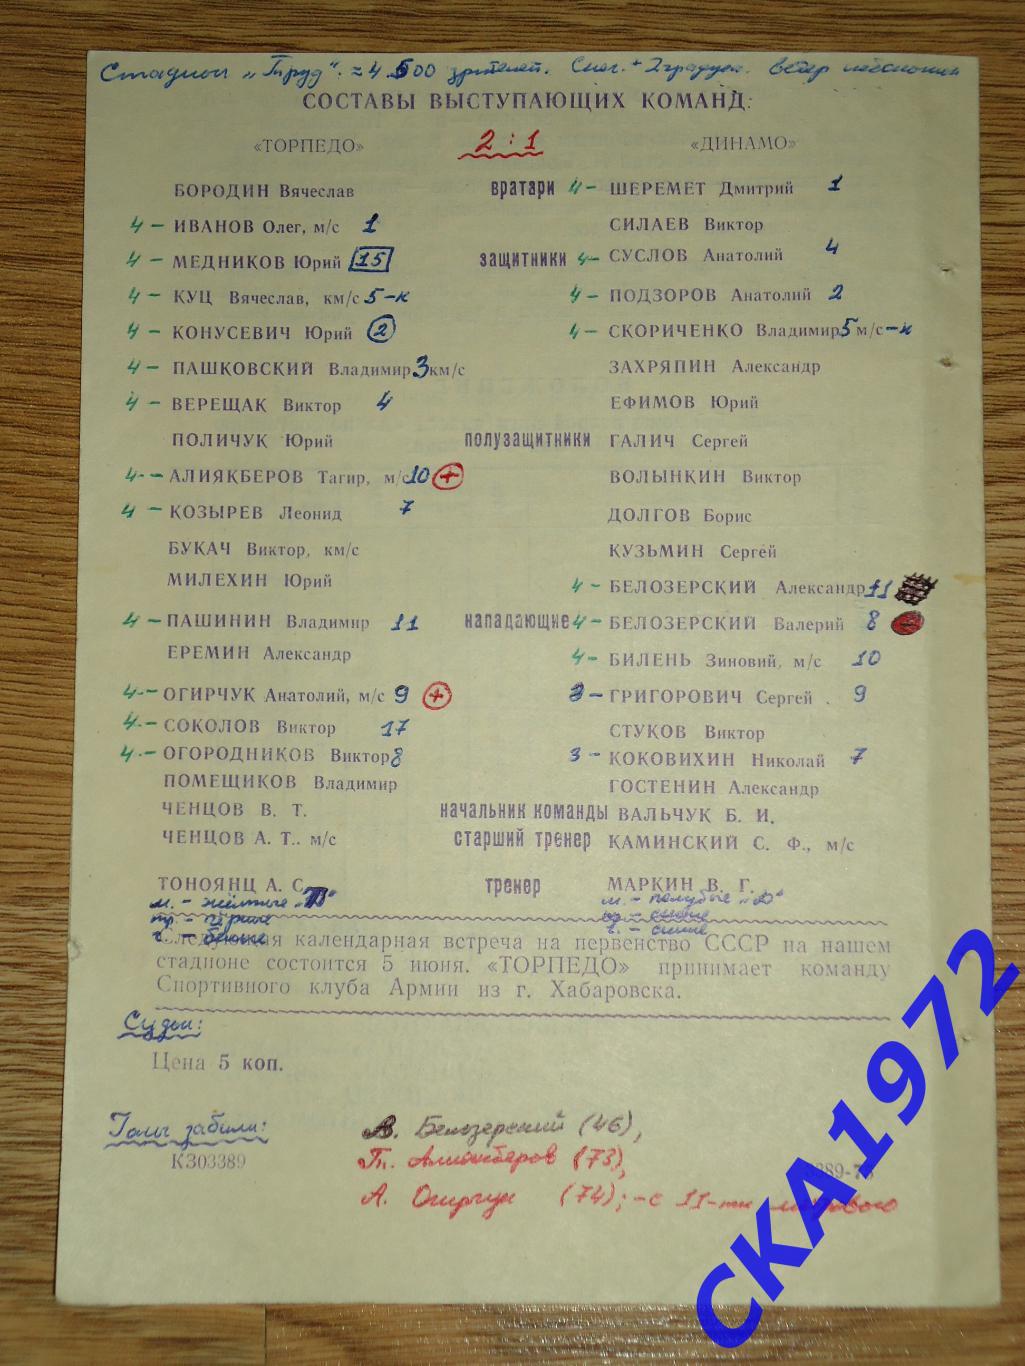 Стадион "Труд". ≈ 4.500 зрителей. Снег. + 2 градуса. Ветер
СОСТАВЫ ВЫСТУПАЮЩИХ КОМАНД:
«ТОРПЕДО» 2:1 «ДИНАМО»
БОРОДИН Вячеслав вратари 4- ШЕРЕМЕТ Дмитрий 1
4- ИВАНОВ Олег, м/с 1 СИЛАЕВ Виктор
4- МЕДНИКОВ Юрий 15 защитники 4- СУСЛОВ Анатолий 4
4- КУЦ Вячеслав, км/с 5-к 4- ПОДЗОРОВ Анатолий 2
4- КОНУСЕВИЧ Юрий 2 4- СКОРИЧЕНКО Владимир 5 м/с -к
4- ПАШКОВСКИЙ Владимир 3 км/с ЗАХРЯПИН Александр
4- ВЕРЕЩАК Виктор 4 ЕФИМОВ Юрий
ПОЛИЧУК Юрий полузащитники ГАЛИЧ Сергей
4- АЛИЯКБЕРОВ Тагир, м/с 10 + ВОЛЫНКИН Виктор
4- КОЗЫРЕВ Леонид 7 ДОЛГОВ Борис
БУКАЧ Виктор, км/с КУЗЬМИН Сергей
МИЛЕХИН Юрий 4- БЕЛОЗЕРСКИЙ Александр 11
4- ПАШИНИН Владимир 11 нападающие 4- БЕЛОЗЕРСКИЙ Валерий 8
ЕРЕМИН Александр 4- БИЛЕНЬ Зиновий, м/с 10
4- ОГИРЧУК Анатолий, м/с 9 + 3- ГРИГОРОВИЧ Сергей 9
4- СОКОЛОВ Виктор 17 СТУКОВ Виктор
4- ОГОРОДНИКОВ Виктор 8 3- КОКОВИХИН Николай 7
ПОМЕЩИКОВ Владимир ГОСТЕНИН Александр
ЧЕНЦОВ В. Т. начальник команды ВАЛЬЧУК Б. И.
ЧЕНЦОВ А. Т.. м/с старший тренер КАМИНСКИЙ С. Ф., м/с
ТОНОЯНЦ А. С. тренер МАРКИН В. Г.
м. - жёлтые "Т" м. - голубые "Д"
тр. - чёрные тр. - синие
г. - белые г. - синие
Следующая календарная встреча на первенство СССР на нашем
стадионе состоится 5 июня. «ТОРПЕДО» принимает команду
Спортивного клуба Армии из г. Хабаровска.
Судьи:
Цена 5 коп.
Голы забили: В. Белозерский (46),
КЗ03389 Т. Алиякберов (73),
А. Огирчук (74); - с 11-ти метрового
СКА1972